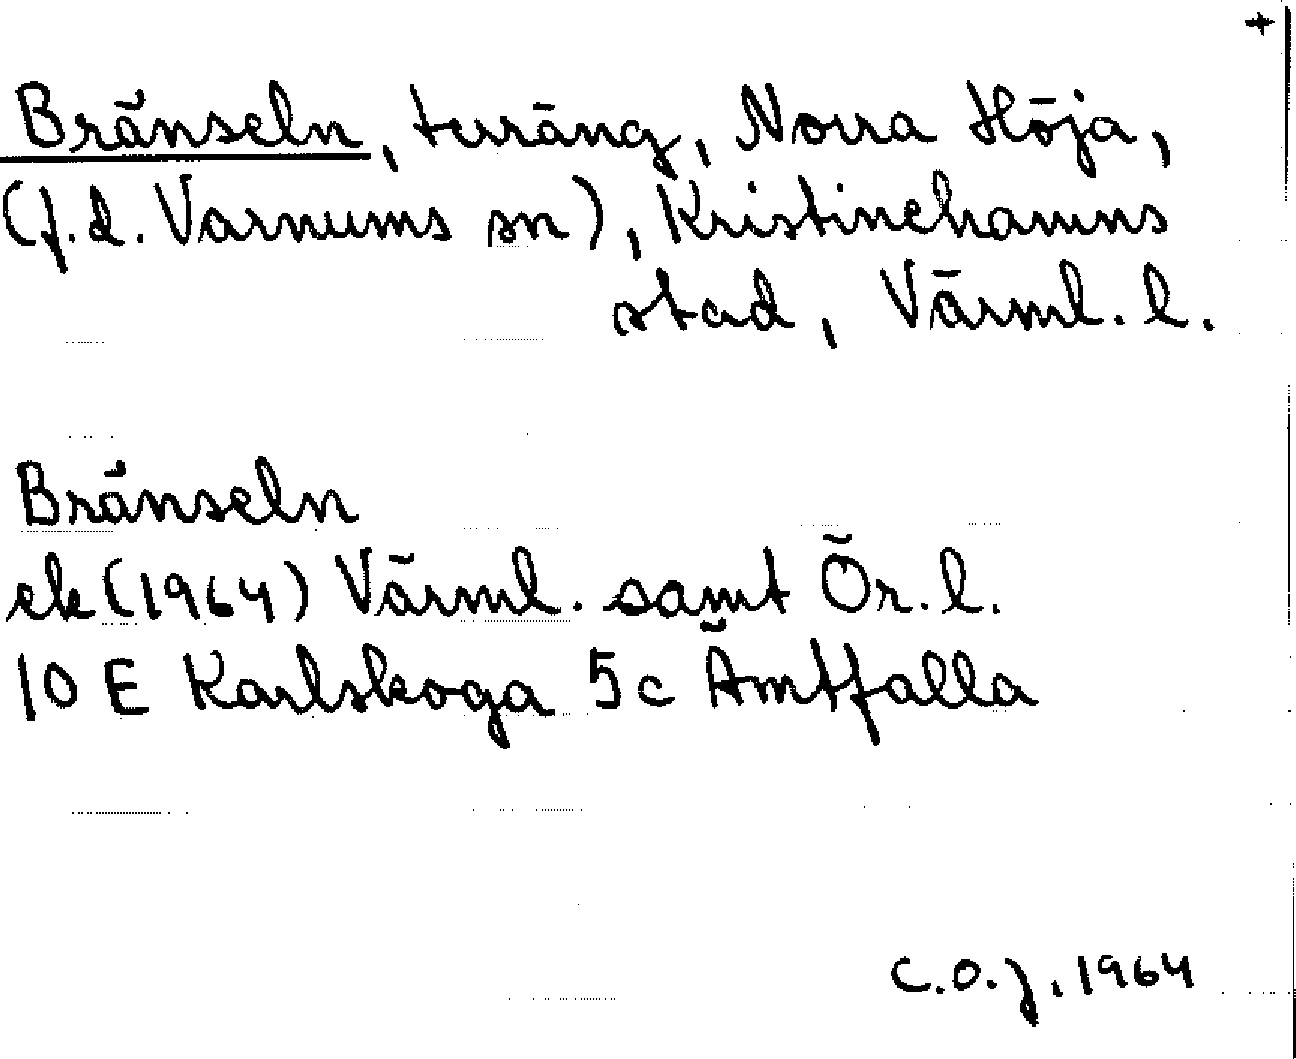 +
Bränseln, terräng, Norra Höja,
(f.d. Varnums sn), Kristinehamns
stad, Värml. l.
Bränseln
ek (1964) Värml. samt Ör. l.
10 E Karlskoga 5c Ämtfalla
C.O.J. 1964